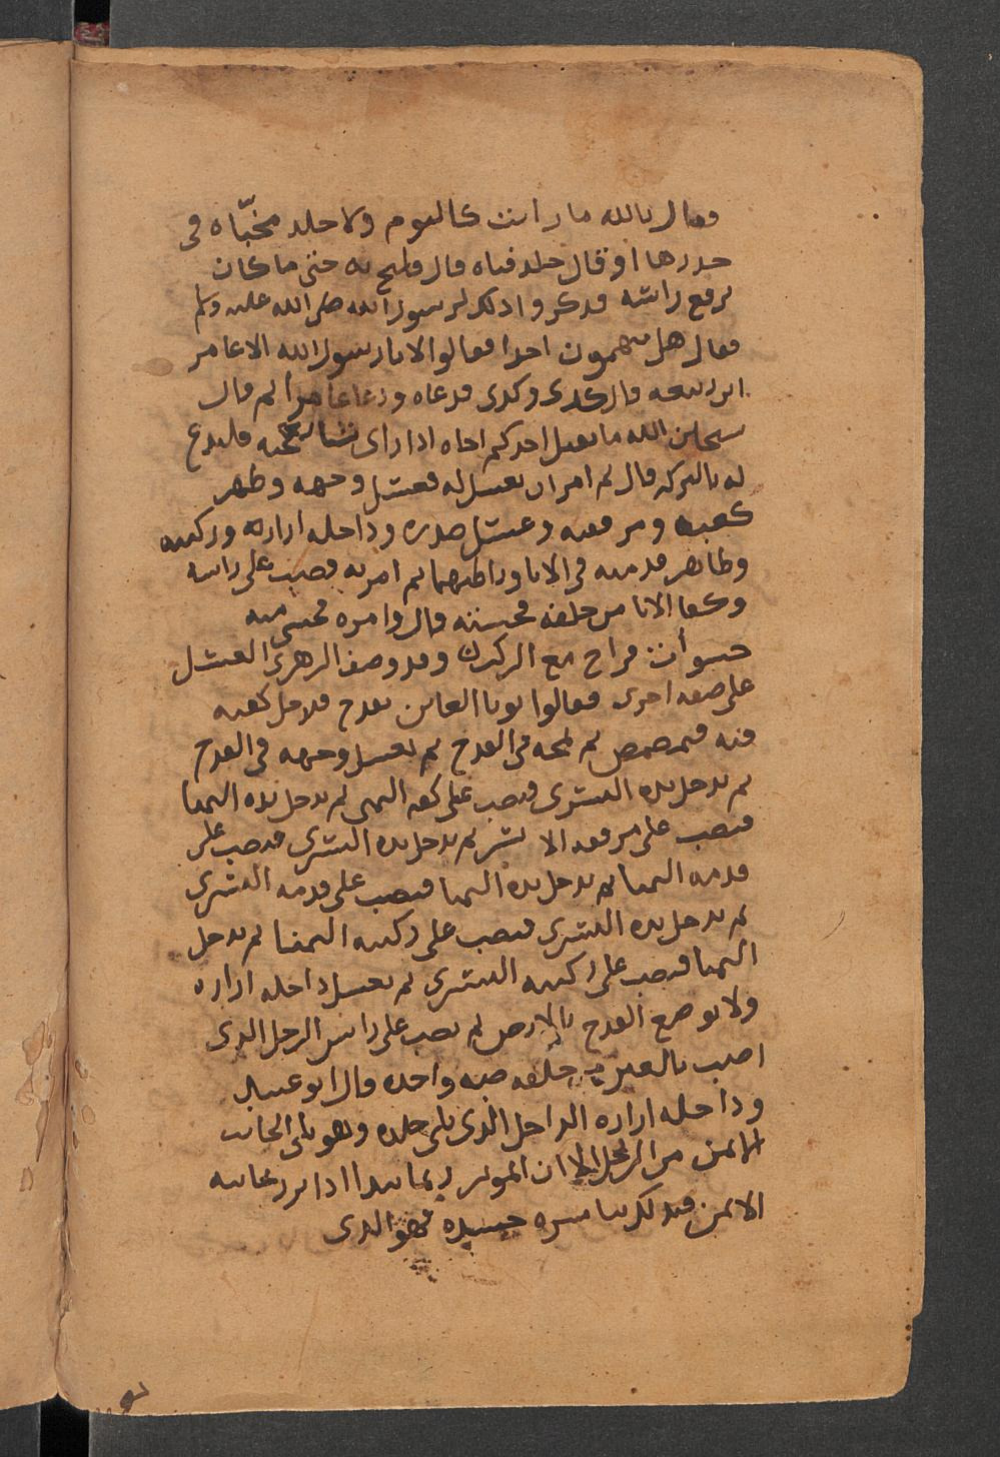 فقال بالله ما رايت كاليوم ولا جلد مخبّاه فى
خدرها او قال جلد فتاه قال فلبج به حتى ما كان
يرفع راسه فذكروا ذلك لرسول الله صلى الله عليه وسلم
فقال هل تتهمون احدا فقالوا لا يا رسول الله الا عامر
ابن ربيعه قال كدى وكدى فدعاه ودعا عامرا ثم قال
سبحان الله ما يقتل احدكم اخاه اذا راى منه شيا يعجبه فليدع
له بالبركه قال ثم امر ان يغسل له فغسل وجهه وظهر
كفيه ومرفقيه وغسل صدره وداخله ازاره وركبتيه
وظاهر قدميه فى الانا وباطنهما ثم امر به فصب على راسه
وكفا الانا من خلفه فحسبته قال وامره فحسى منه
حسوات فراح مع الركب وقد وصف الزهرى الغسل
على صفه اخرى فقالوا يوتا العاين بقدح فيدخل كفيه
فيه فيمضمض ثم يمجه فى القدح ثم يغسل وجهه فى القدح
ثم يدخل يده اليسرى فيصب على كفه اليمنى ثم يدخل يده اليمنا
فيصب على مرفقه الايسر ثم يدخل يده اليسرى فيصب على
قدمه اليمنا ثم يدخل يده اليمنا فيصب على قدمه اليسرى
ثم يدخل يده اليسرى فيصب على ركبته اليمنا ثم يدخل
اليمنا فيصب على ركبته اليسرى ثم يغسل داخله ازاره
ولا يوضع القدح بالارض ثم يصب على راس الرجل الذى
اصيب بالعين من خلفه صبه واحده قال ابو عبيد
وداخله ازاره الداخل الذى يلى جلده وهو يلى الجانب
الايمن من الرجل الا ان الموتزر انما يبدا اذا ايتزر بجانبه
الايمن فذلك يباشره جسده فهو الذى